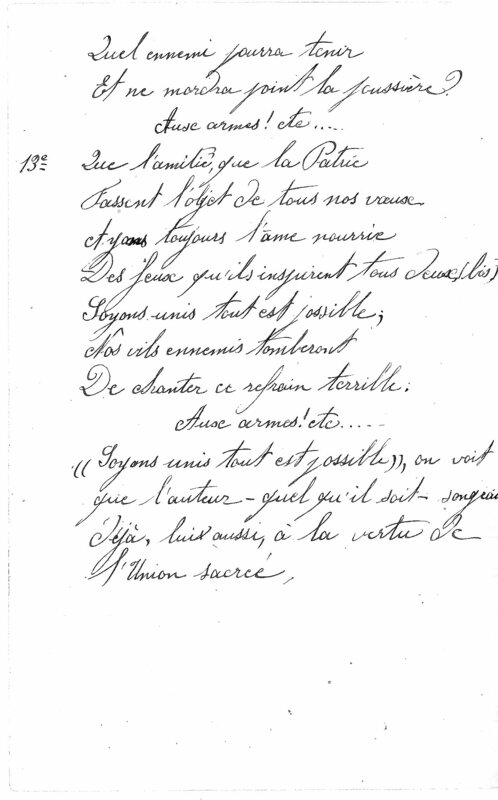 Quel ennemi pourra tenir
Et ne mordra point la poussière?
Aux armes! etc....
13e Que l'amitié, que la Patrie
Fassent l'objet de tous nos vœux
Ayons toujours l'âme nourrie
Des feux qu'ils inspirent tous deux, (bis)
Soyons unis tout est possible;
Nos vils ennemis tomberont
De chanter ce refrain terrible:
Aux armes! etc.....
((Soyons unis tout est possible)), on voit
que l'auteur - quel qu'il soit - songeai
déjà, lui aussi, à la vertu de
l'Union sacrée,